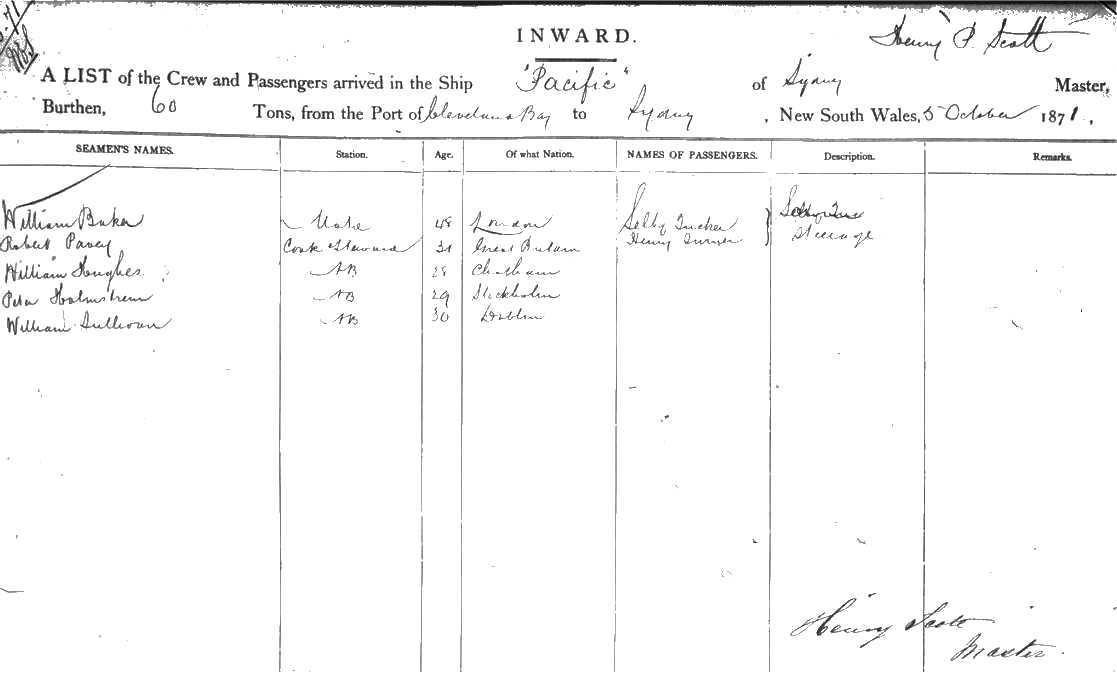 INWARD.
Henry P. Scott
A LIST of the Crew and Passengers arrived in the Ship "Pacific" of Sydney Master,
Burthen, 60 Tons, from the Port of Cleveland Bay to Sydney, New South Wales, 5 October 1871,
SEAMEN'S NAMES. Station. Age. Of what Nation. NAMES OF PASSENGERS. Description. Remarks.
William Baker Mate 48 London Selby Tucker
Robert Pavey Cook & Steward 31 Great Britain Henry Turner Steerage
William Hughes AB 28 Chatham
Peter Holmstrem AB 29 Stockholm
William Sullivan AB 30 Dublin
Henry Scott
Master.